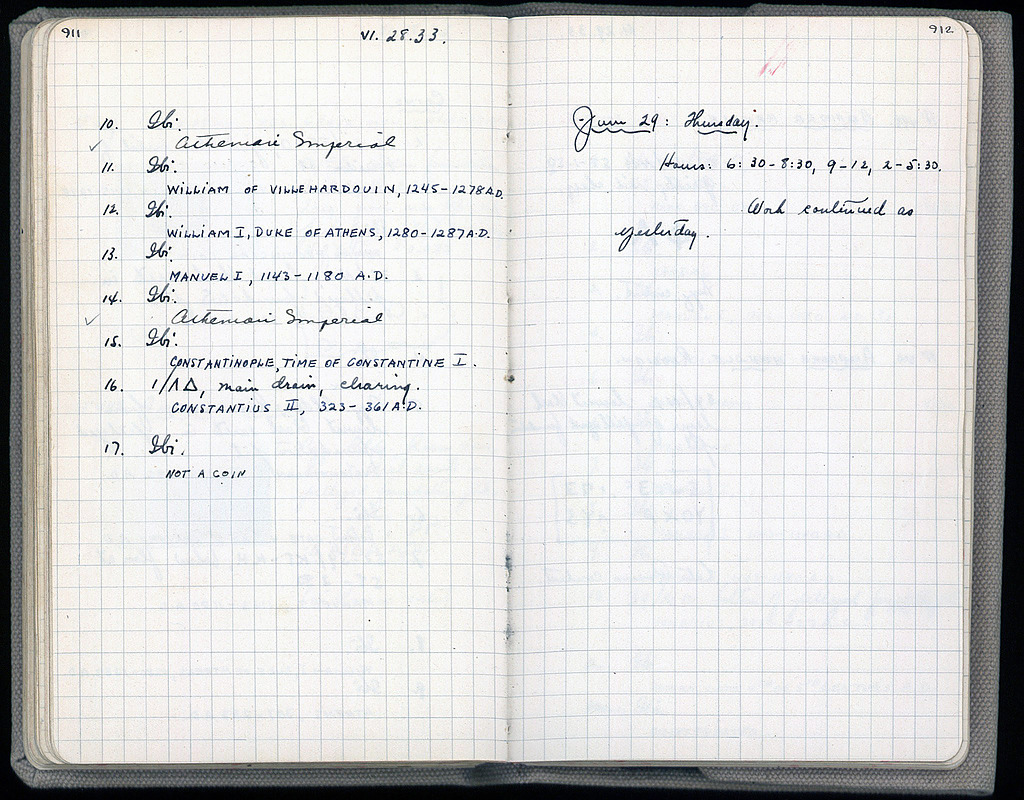 911
VI. 28.33.
10. Ibi.
Athenian Imperial
11. Ibi.
WILLIAM OF VILLEHARDOUIN, 1245-1278 A.D.
12. Ibi.
WILLIAM I, DUKE OF ATHENS, 1280-1287 A.D.
13. Ibi.
MANUEL I, 1143-1180 A.D.
14. Ibi.
Athenian Imperial
15. Ibi.
CONSTANTINOPLE, TIME OF CONSTANTINE I.
16. 1/ΛΔ, main drain, clearing.
CONSTANTIUS II, 323-361 A.D.
17. Ibi.
NOT A COIN
912
June 29: Thursday.
Hours: 6:30-8:30, 9-12, 2-5:30.
Work continued as
yesterday.